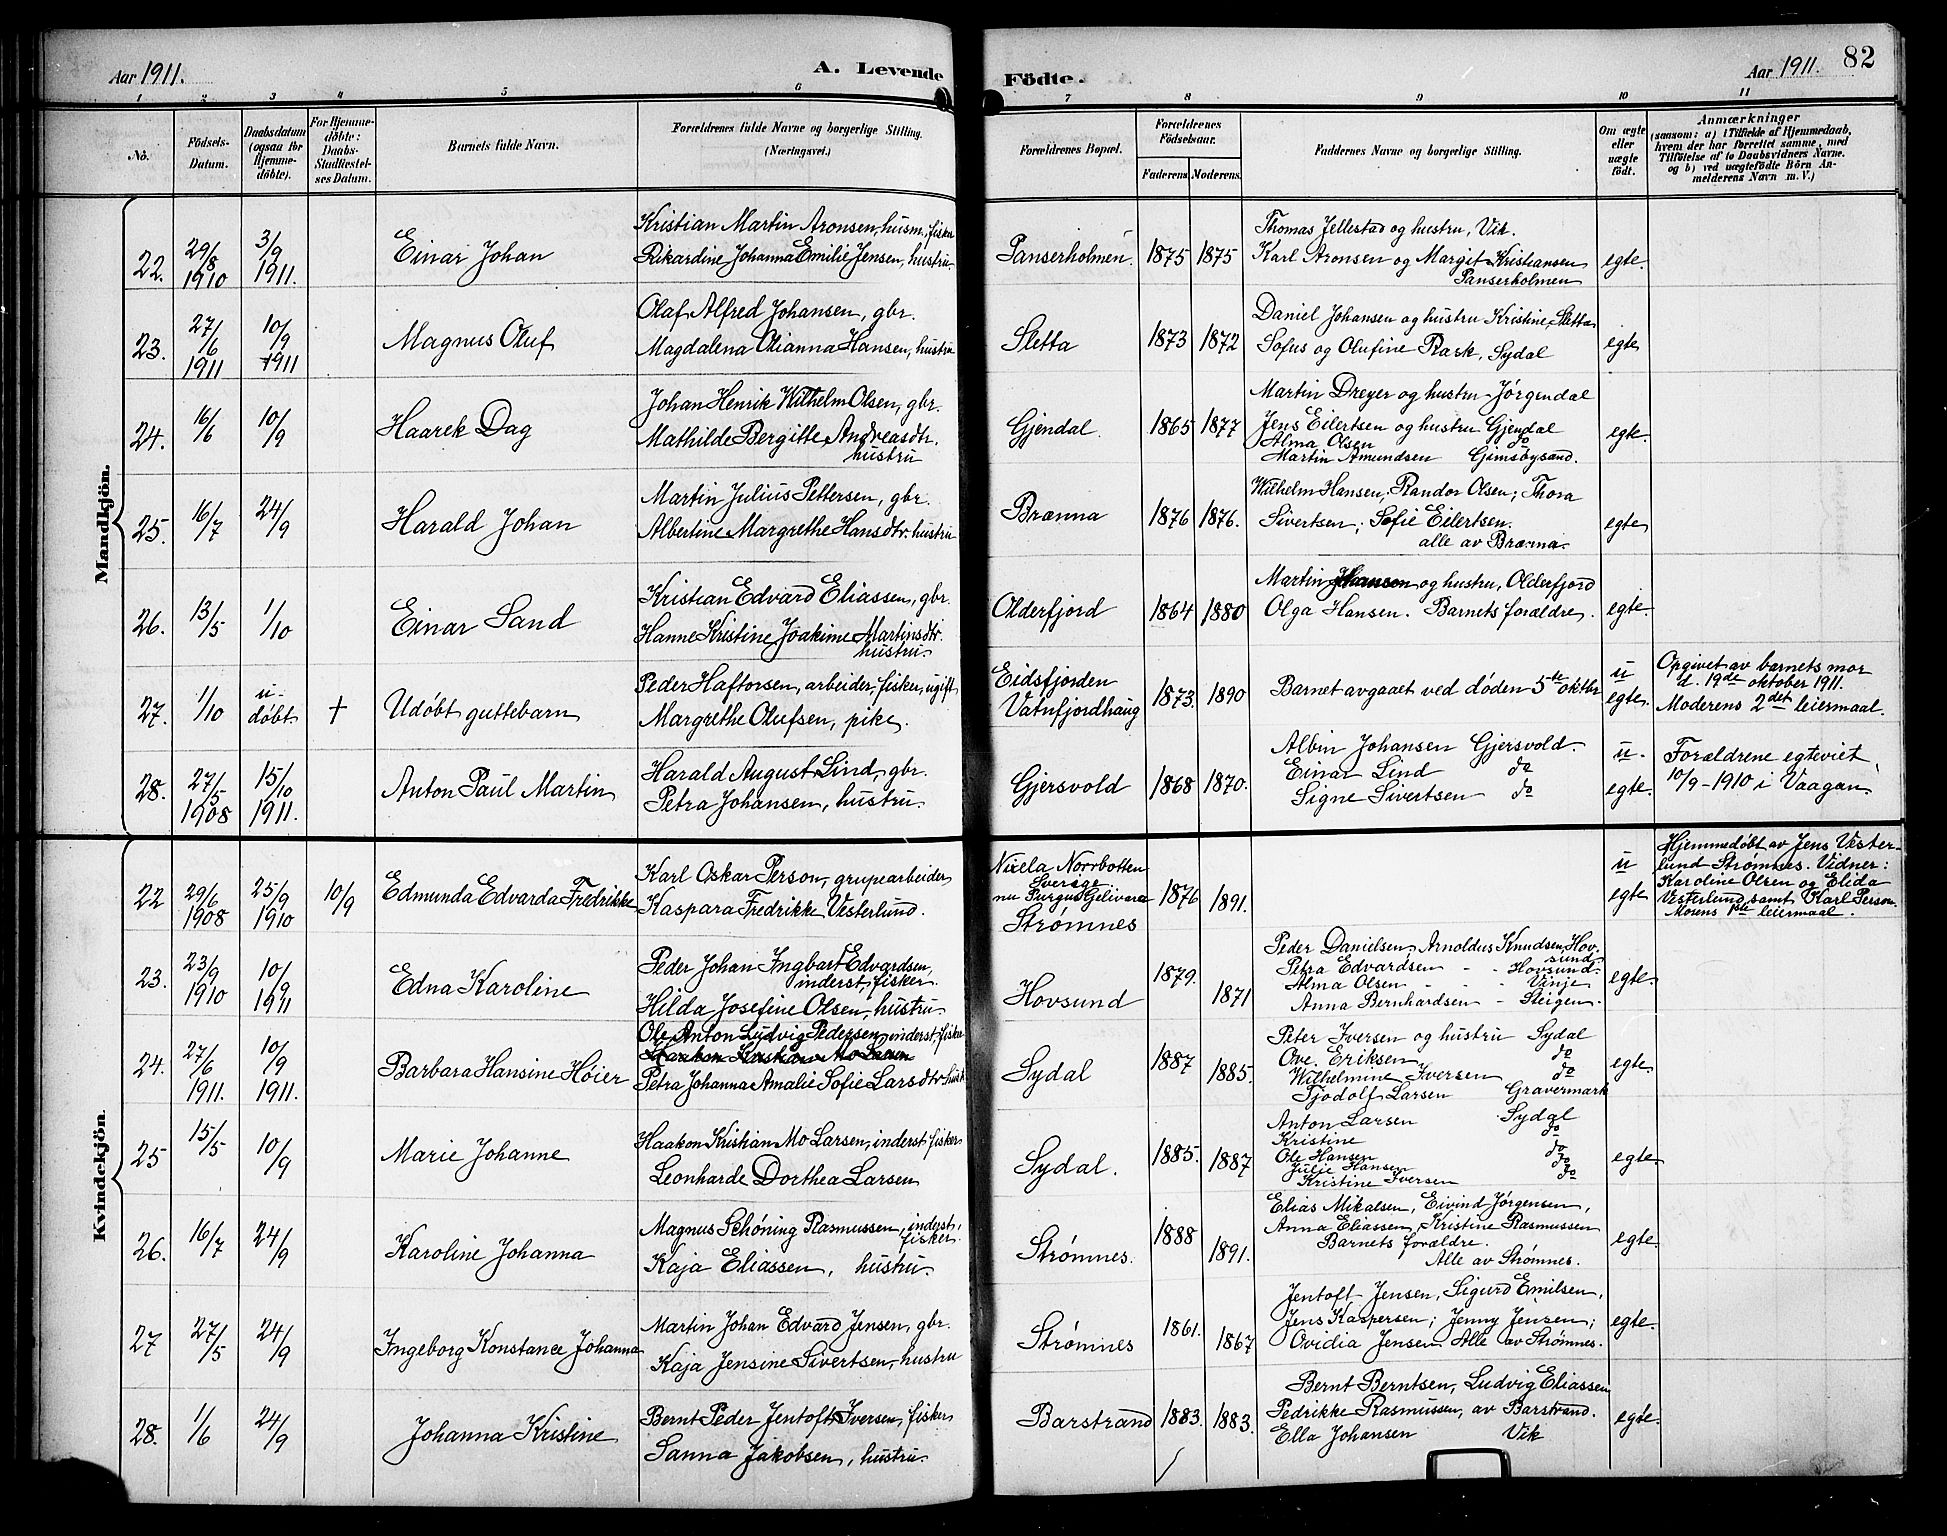 Aar 1911.
A. Levende Födte.
Aar 1911. 82
1 2 3 4 5 6 7 8 9 10 11
No.
Födsels-Datum.
Daabsdatum (ogsaa for Hjemme-döbte).
For Hjemme-döbte: Daabs-Stadfæstel-ses Datum.
Barnets fulde Navn.
Forældrenes fulde Navne og borgerlige Stilling.
(Næringsvei.)
Forældrenes Bopæl.
Forældrenes Födselsaar.
Faderens. Moderens.
Faddernes Navne og borgerlige Stilling.
Om ægte eller uægte födt.
Anmærkninger
(saasom: a) i Tilfælde af Hjemmedaab,
hvem der har forrettet samme, med
Tilföielse af to Daabsvidners Navne.
og b) ved uægtefödte Börn An-
melderens Navn m. V.)
Mandkjön.
22. 29/8 1910 3/9 1911. Einar Johan
Kristian Martin Aronsen, husm., fisker
Rikardine Johanna Emilie Jensen, hustru.
Panserholmen. 1875 1875
Thomas Jellestad og hustru, Vik.
Karl Aronsen og Margit Kristiansen
Panserholmen
egte.
23. 27/6 1911 10/9 1911 Magnus Oluf
Olaf Alfred Johansen, gbr.
Magdalena Olianna Hansen, hustru
Sletta 1873 1872
Daniel Johansen og hustru Kristine, Sletta
Sofus og Olufine Rask, Sydal
egte
24. 16/6 10/9 Haarek Dag
Johan Henrik Wilhelm Olsen, gbr.
Mathilde Bergitte Andreasdtr.
hustru
Gjendal. 1865 1877
Martin Dreyer og hustru Jórgendal
Jens Eilertsen og hustru Gjendal
Alma Olsen do
Martin Amundsen Gimsóysand.
egte.
25. 16/7 24/9 Harald Johan
Martin Julius Pettersen, gbr.
Albertine Margrethe Hansdtr. hustru
Brænna 1876 1876.
Wilhelm Hansen; Randor Olsen; Thora
Sivertsen; Sofie Eilertsen.
alle av Brænna.
egte
26. 13/5 1/10 Einar Sand
Kristian Edvard Eliassen, gbr.
Hanne Kristine Joakime Martinsdtr.
hustru.
Olderfjord 1864 1880
Martin Johansen og hustru, Olderfjord
Olga Hansen. Barnets forældre.
egte.
27. 1/10 u-døbt † Udøbt guttebarn
Peder Haftorsen, arbeider, fisker, ugift
Margrethe Olufsen, pike.
Eidsfjorden
Vatnfjordhaug 1873. 1890
Barnet avgaaet ved døden 5te oktbr
u egte.
Opgivet av barnets mor
d. 19de oktober 1911.
Moderens 2det leiermaal.
28. 27/5 1908 15/10 1911. Anton Paul Martin
Harald August Lind, gbr.
Petra Johansen, hustru.
Gjersvold 1868 1870.
Albin Johansen Gjersvold.
Einar Lind do
Signe Sivertsen do
u- egte.
Forældrene egteviet
10/9-1910 i Vaagan.
Kvindekjön.
22 29/6 1908 25/9 1910 10/9 Edmunda Edvarda Fredrikke
Karl Oskar Person, grupearbeider
Kaspara Fredrikke Vesterlund.
Nixela Norrbotten
Sverige
nu Purgus Gelivara
Strømnes 1876 1891.
u egte
Hjemmedøbt av Jens Vester-
lund Strømnes. Vidner:
Karoline Olsen og Elida
Vesterlund samt Karl Person.
Morens 1ste leiermaal.
23. 23/9 1910 10/9 1911 Edna Karoline
Peder Johan Ingbart Edvardsen,
inderst, fisker.
Hilda Josefine Olsen, hustru.
Hovsund 1879. 1871
Peder Danielsen, Arnoldus Knudsen, Hov-
sund.
Petra Edvardsen - - Hovsund.
Alma Olsen - - Vinje
Anna Bernhardsen - Steigen.
egte.
24. 27/6 1911. 10/9 1911. Barbara Hansine Høier
Ole Anton Ludvig Pedersen, inderst, fisker
Haakon Kristian Mo Larsen
Petra Johanna Amalie Sofie Larsdtr. hust.
Sydal 1887 1885.
Peter Iversen og hustru Sydal
Ove Eriksen do
Wilhelmine Iversen do
Tjodolf Larsen Gravermark
egte.
25 15/5 10/9 Marie Johanne
Haakon Kristian Mo Larsen, inderst fisker
Leonharde Dorthea Larsen
Sydal. 1885. 1887
Anton Larsen Sydal
Kristine do
Ole Hansen do
Julie Hansen do
Kristine Iversen do
egte.
26. 16/7 24/9 Karoline Johanna
Magnus Schóning Rasmussen, inderst,
fisker.
Kaja Eliassen, hustru.
Strømnes. 1888 1891.
Elias Mikalsen, Eivind Jørgensen,
Anna Eliassen, Kristine Rasmussen
Barnets forældre.
Alle av Strømnes.
egte.
27 27/5 24/9 Ingeborg Konstance Johanna
Martin Johan Edvard Jensen, gbr.
Kaja Jensine Sivertsen, hustru
Strømnes 1861. 1867
Jentoft Jensen, Sigurd Emilsen,
Jens Kaspersen; Jenny Jensen;
Ovidia Jensen. Alle av Strømnes.
egte.
28. 1/6 24/9 Johanna Kristine
Bernt Peder Jentoft Iversen, fisker
Sanna Jakobsen, hustru.
Barstrand 1883. 1883.
Bernt Berntsen, Ludvig Eliassen
Pedrikke Rasmussen, av Barstrand.
Ella Johansen Vik
egte.